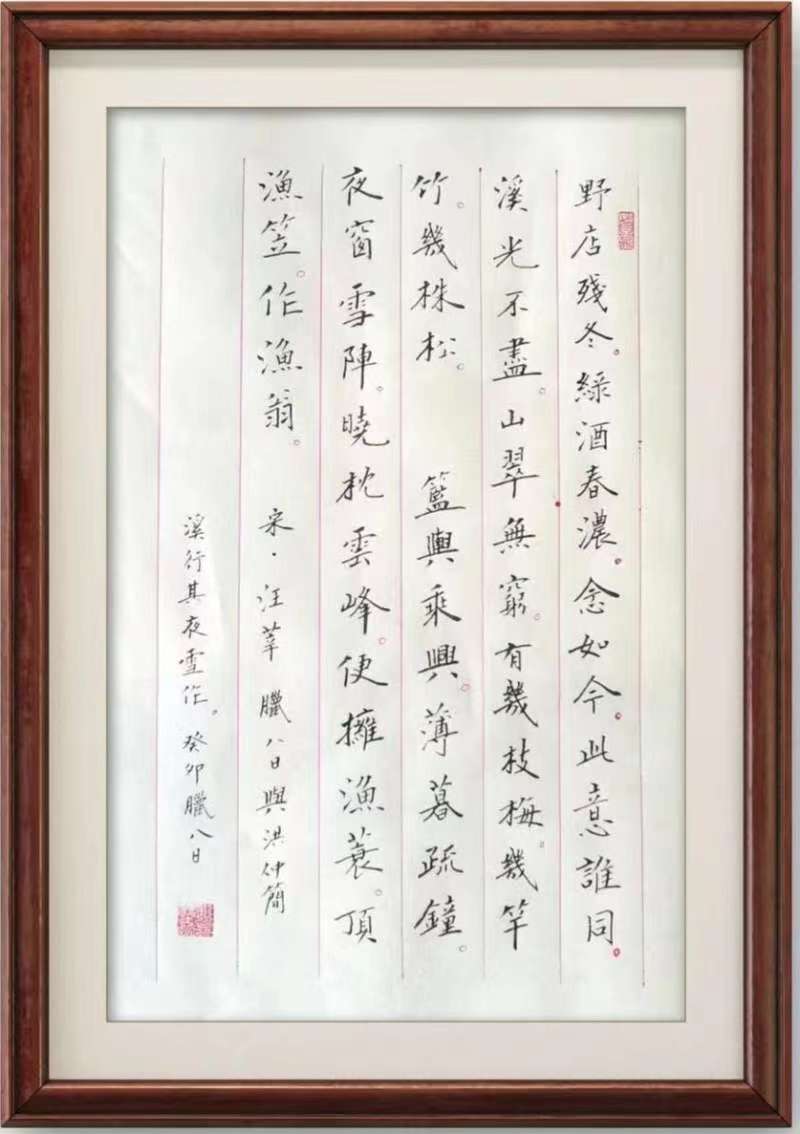 野店殘冬。綠酒春濃。念如今。此意誰同。
溪光不盡。山翠無窮。有幾枝梅。幾竿
竹。幾株松。　籃輿乘興。薄暮疏鐘。
夜窗雪陣。曉枕雲峰。便擁漁蓑。頂
漁笠。作漁翁。　宋·汪莘　臘八日與洪仲簡
溪行其夜雪作。癸卯臘八日